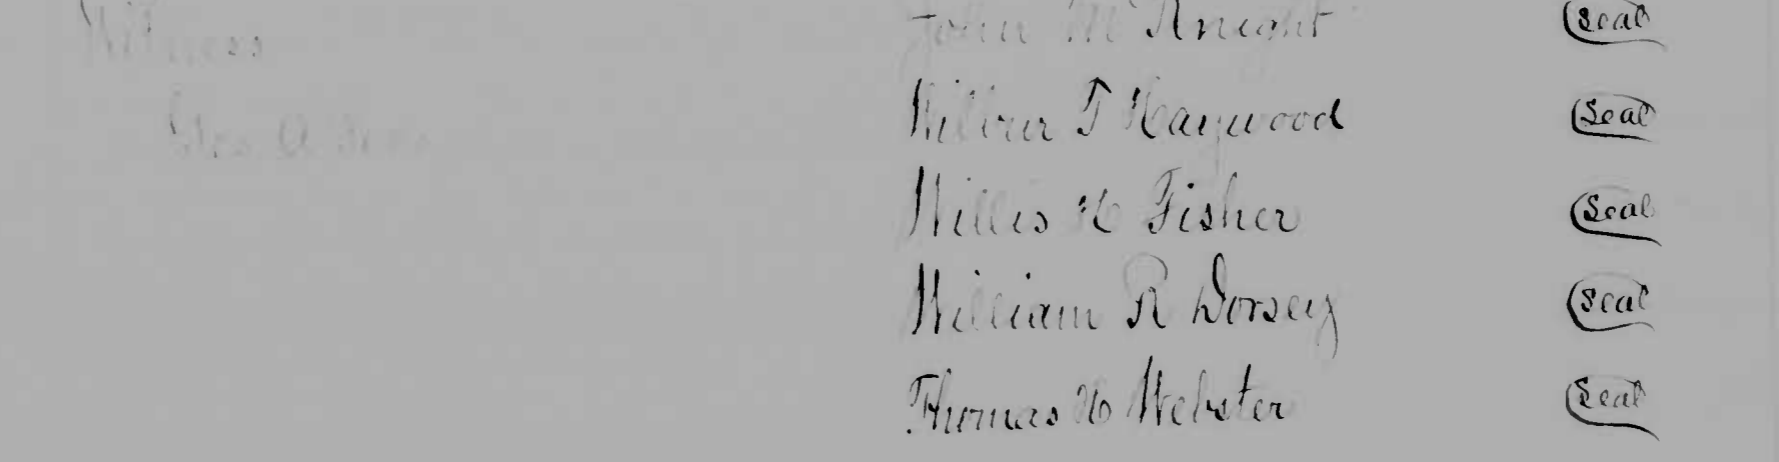 Witness John McKnight (Seal)
Wilbur F Haywood (Seal)
Geo A
Willis H Fisher (Seal)
William R Dorsey (Seal)
Thomas H Webster (Seal)